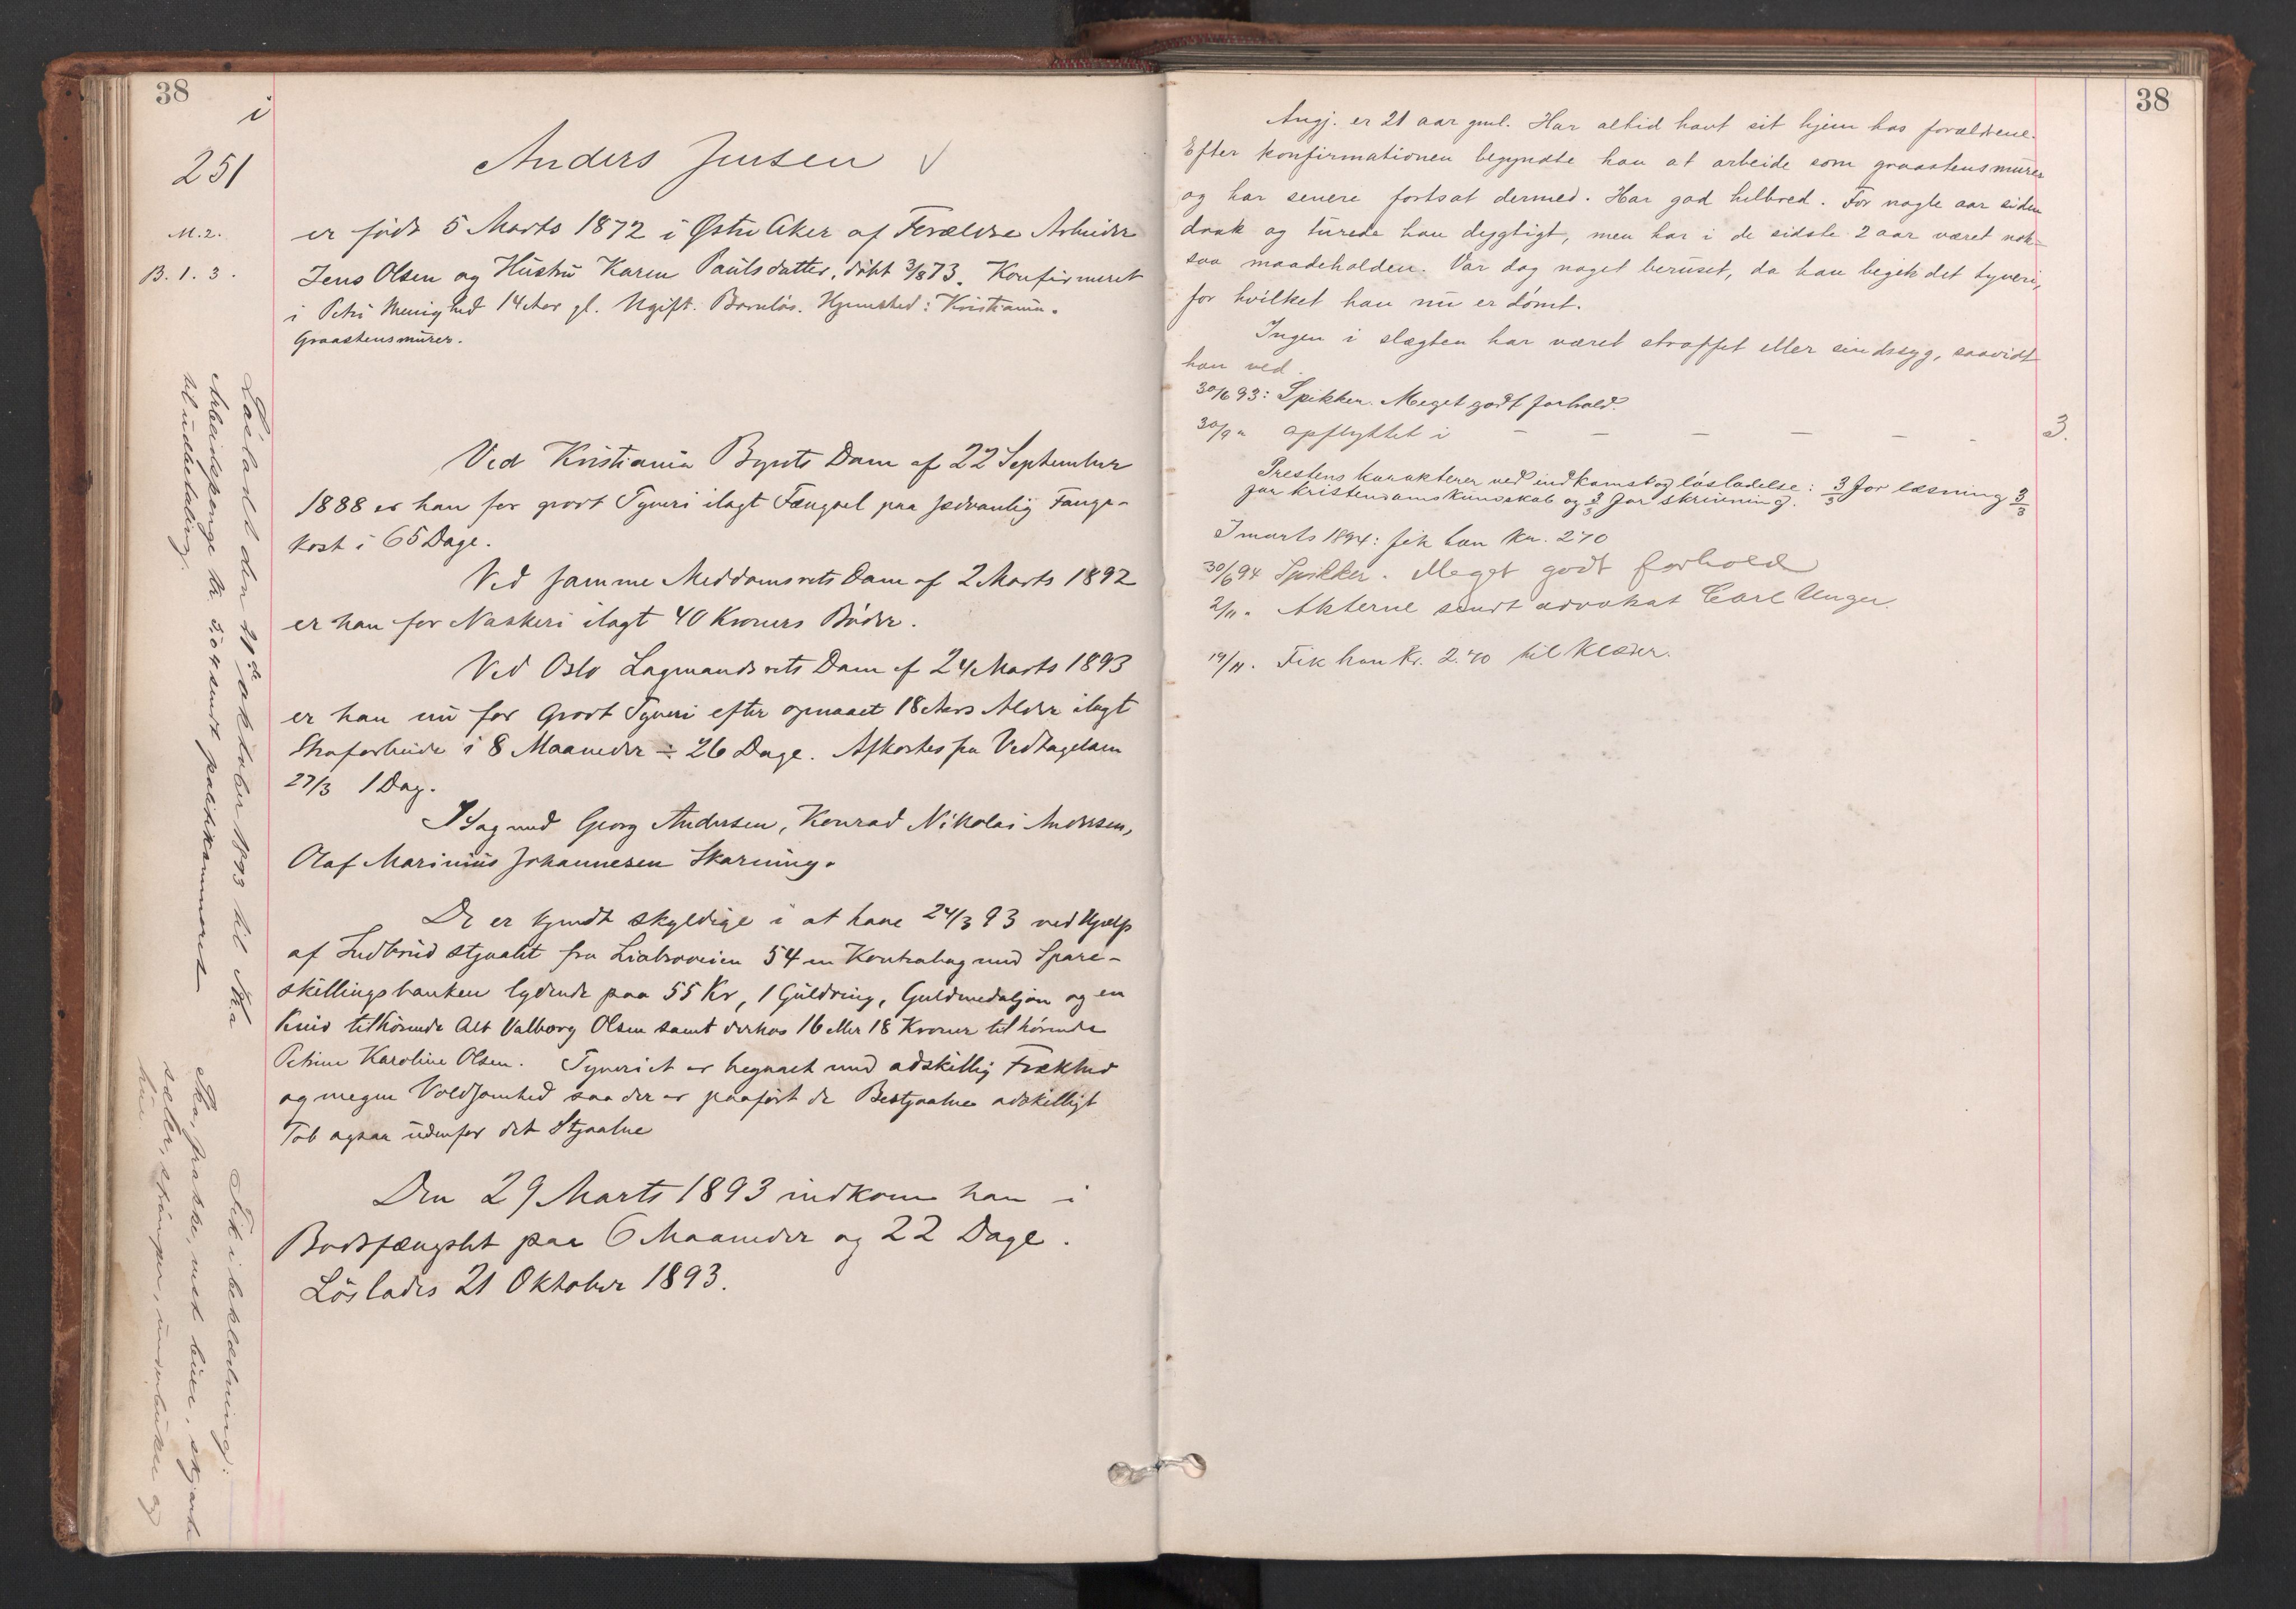 38
i
251
M. 2.
B. 1. 3.
Anders Jensen √
er født 5 Marts 1872 i Østre Aker af Forældre Arbeider
Jens Olsen og Hustru Karen Paulsdatter, døbt 3/8 73. Konfirmeret
i Petri Menighed 14 Aar gl. Ugift. Barnløs. Hjemsted: Kristiania.
Graastensmurer.
Ved Kristiania Byrets Dom af 22 September
1888 er han for grovt Tyveri ilagt Fængsel paa sædvanlig Fange-
kost i 65 Dage.
Ved samme Meddomsrets Dom af 2 Marts 1892
er han for Naskeri ilagt 40 Kroners Bøder.
Ved Oslo Lagmandsrets Dom af 24 Marts 1893
er han nu for Grovt Tyveri efter opnaaet 18 Aars Alder ilagt
Strafarbeide i 8 Maaneder ÷ 26 Dage. Afkortes fra Vedtagelsen
27/3 1 Dag.
I Sag med Georg Andersen, Konrad Nikolai Andersen,
Olaf Marinius Johannesen Skarning.
De er kjendt skyldige i at have 24/3 93 ved Hjælp
af Indbrud stjaalet fra Liabroveien 54 en Kontrabog med Spare-
skillingsbanken lydende paa 55 Kr, 1 Guldring, Guldmedaljon og en
Kniv tilhørende Alb Valborg Olsen samt derhos 16 eller 18 Kroner tilhørende
Petrine Karoline Olsen. Tyveriet er begaaet med adskillig Frækhed
og megen Voldsomhed saa der er paaført de Bestjaalne adskilligt
Tab ogsaa udenfor det Stjaalne
Den 29 Marts 1893 indkom han i
Bodsfængslet paa 6 Maaneder og 22 Dage.
Løslades 21 Oktober 1893.
Løsladt den 21de oktober 1893 til Kra
Arbeidspenge kr. 5,04 sendt politikammeret
til udbetaling.
Fik i beklædning:
Sko, frakke, vest, buxe, skjorte
seler, strømper, underbukse og
hue.
38
Angj. er 21 aar gml. Har altid havt sit hjem hos forældrene.
Efter konfirmationen begyndte han at arbeide som graastensmurer
og har senere fortsat dermed. Har god helbred. For nogle aar siden
drak og turede han dygtigt, men har i de sidste 2 aar været nok-
saa maadeholden. Var dog noget beruset, da han begik det tyveri,
for hvilket han nu er dømt.
Ingen i slægten har været straffet eller sindssyg, saavidt
han ved.
30/6 93: Spikker. Meget godt forhold.
30/9 " opflyttet i — — — — — - 3.
Prestens karakterer ved indkomst og løsladelse: 3/3 for læsning 3/3
for kristendomskundskab og 3/3 for skrivning.
I marts 1894: fik han Kr. 2.70
30/6 94 Spikker. Meget godt forhold
2/11 " Akterne sendt advokat Carl Unger.
19/11. Fik han Kr. 2.70 til Klæder.